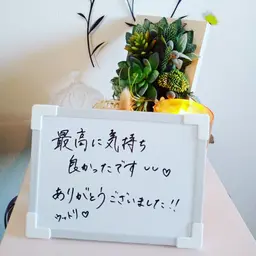 最高に気持ち
良かったです ◡◡♡
ありがとうございました!!
ウットリ♡